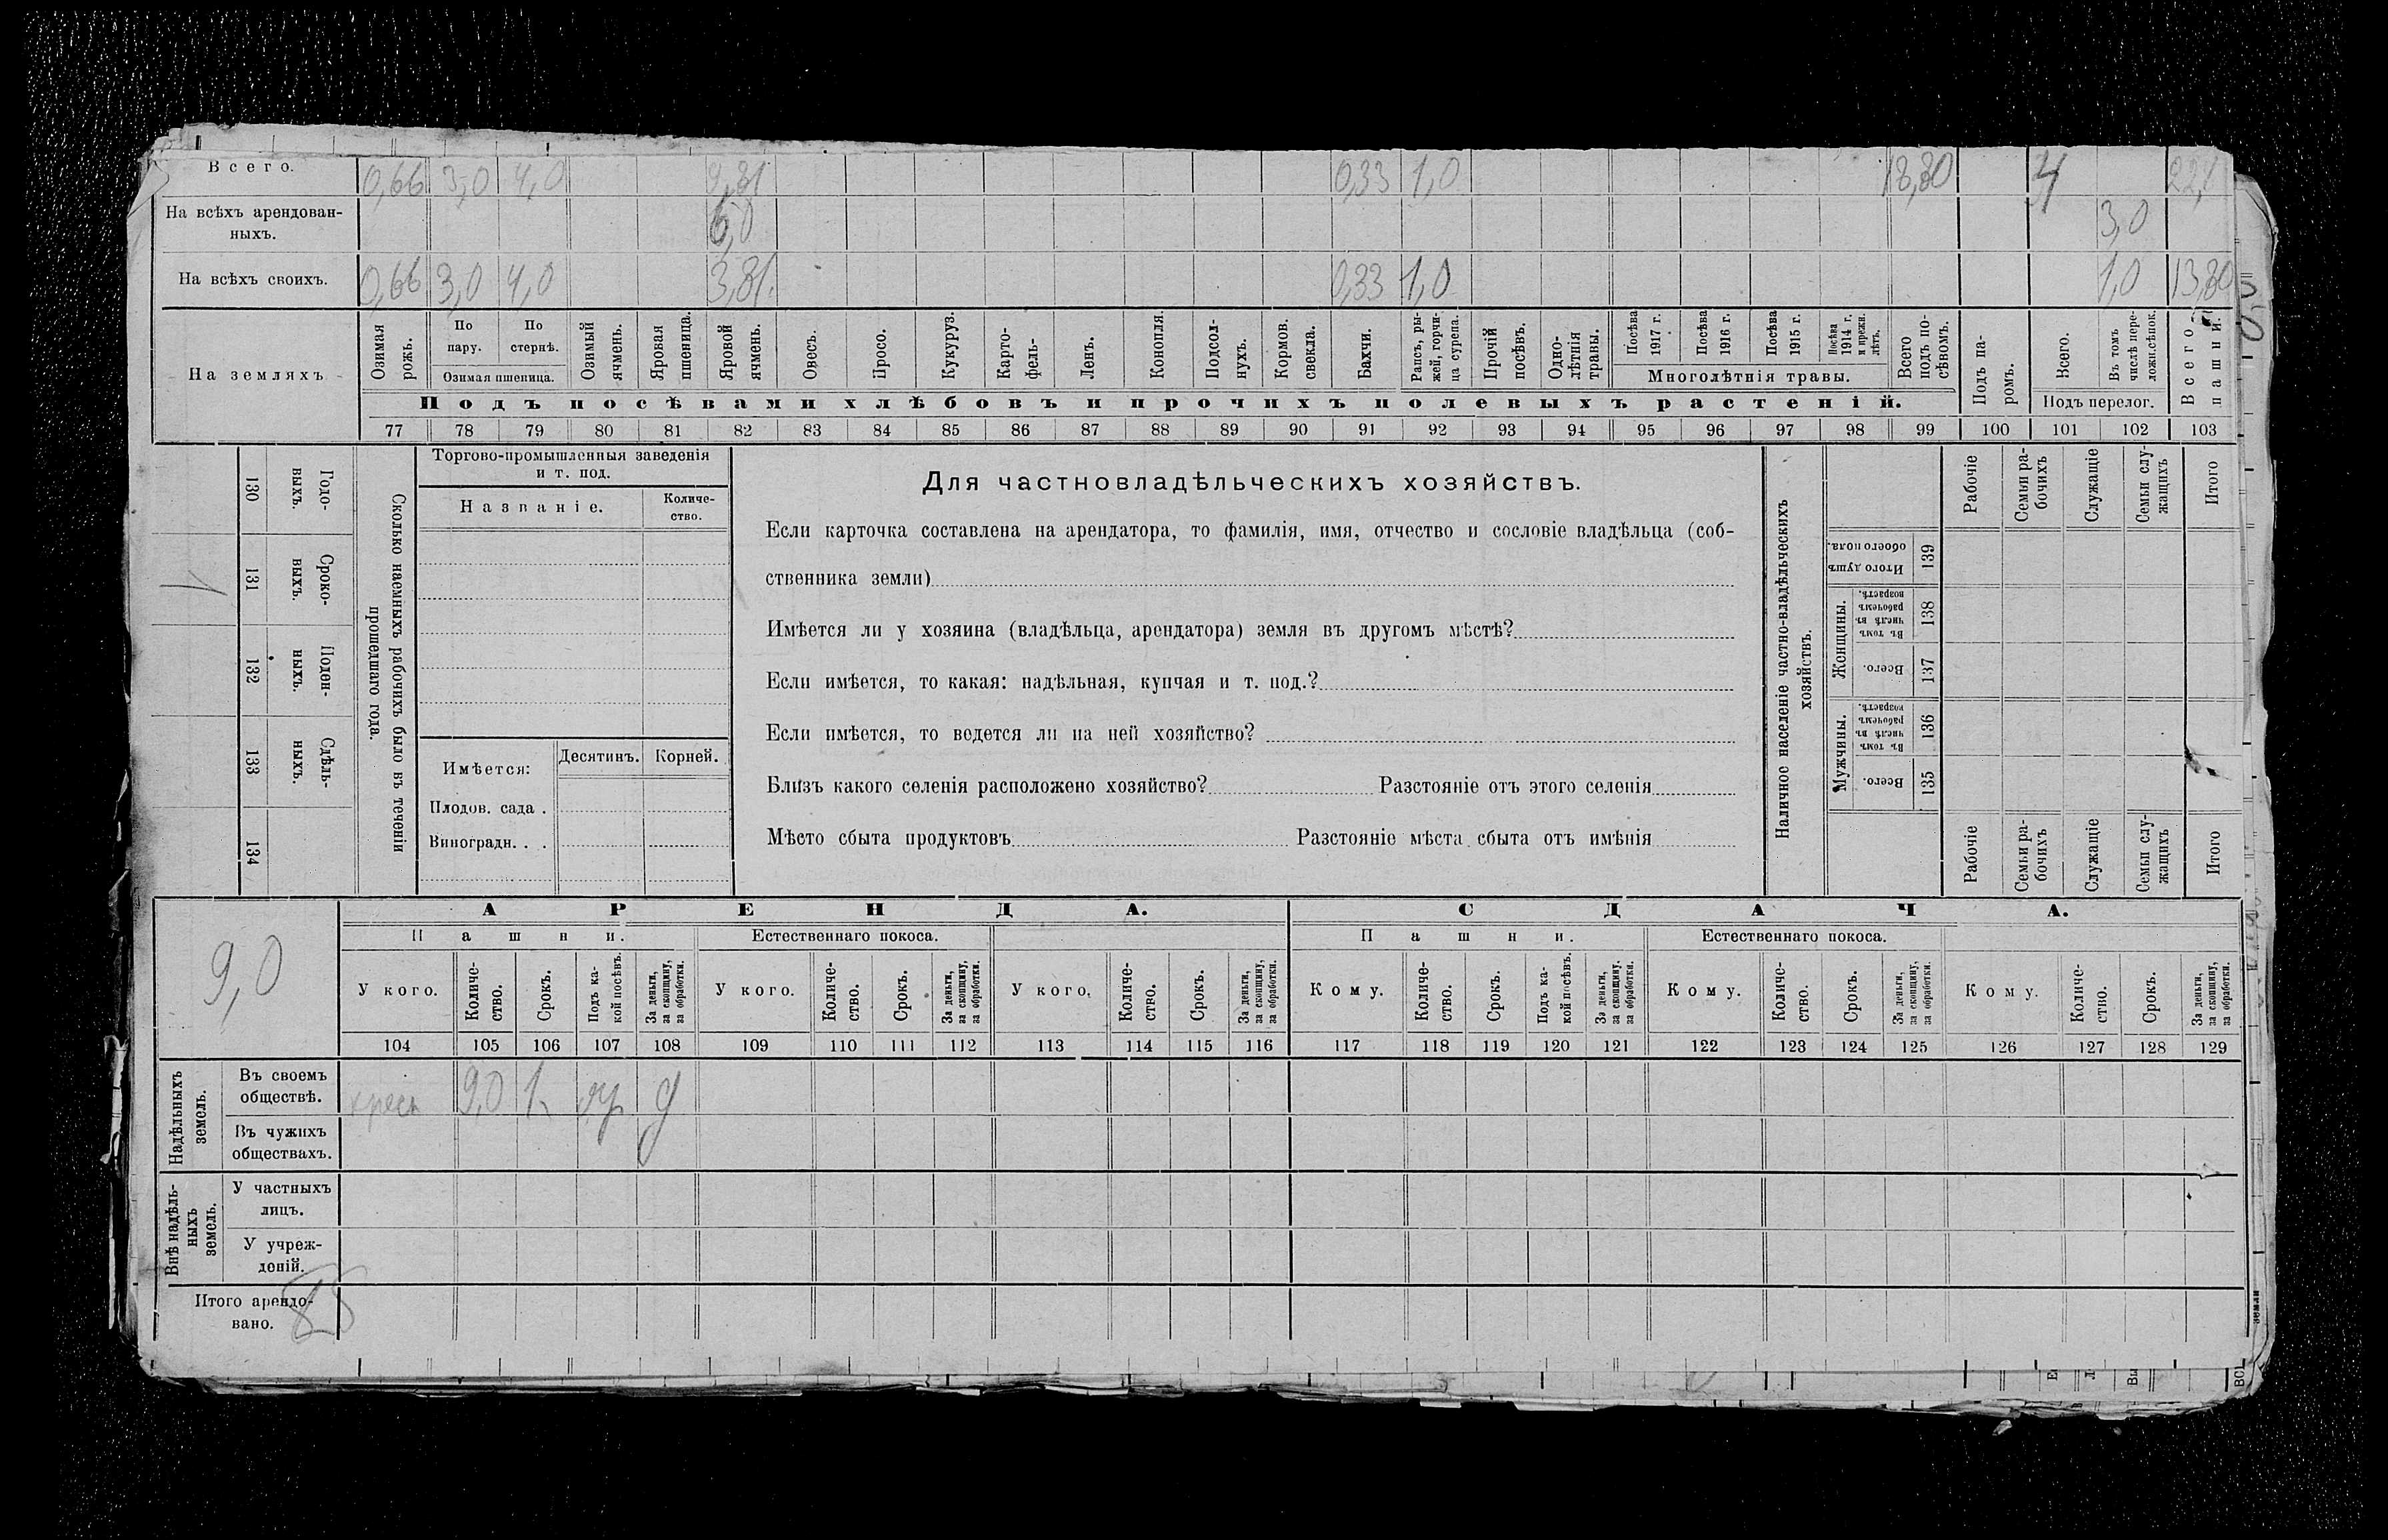 Всего. 0,66 3,0 4,0 9,81 0,33 1,0 18,80 4
На всѣхъ арендован-
ныхъ. 6,0 3,0
На всѣхъ своихъ. 0,66 3,0 4,0 3,81 0,33 1,0 1,0 13,80
На земляхъ
Озимая рожь.
По пару.
По стернѣ.
Озимая пшеница.
Озимый ячмень.
Яровая пшеница.
Яровой ячмень.
Овесъ.
Просо.
Кукуруз.
Карто-
фель-
Ленъ.
Конопля.
Подсол-
нухъ.
Кормов. свекла.
Бахчи.
Рапсъ, ры-
жей, горчи-
ца сурепа.
Прочій посѣвъ.
Одно-
лѣтнія травы.
Посѣва 1917 г.
Посѣва 1916 г.
Посѣва 1915 г.
Посѣва 1914 г. и прежн. лѣтъ.
Многолѣтнія травы.
Всего подъ по-
сѣвомъ.
Подъ па-
ромъ.
Всего.
Въ томъ числѣ пере-
ложн.сѣнок.
Подъ перелог.
Всего пашни.
Подъ посѣвами хлѣбовъ и прочихъ полевыхъ растеній.
77 78 79 80 81 82 83 84 85 86 87 88 89 90 91 92 93 94 95 96 97 98 99 100 101 102 103
130 Годо-
выхъ.
131 Сроко-
выхъ.
132 Поден-
ныхъ.
133 Сдѣль-
ныхъ.
134
Сколько наемныхъ рабочихъ было въ теченіи
прошедшаго года.
Торгово-промышленныя заведенія
и т. под.
Названіе.
Количе-
ство.
Имѣется:
Десятинъ. Корней.
Плодов. сада .
Виноградн. . .
Для частновладѣльческихъ хозяйствъ.
Если карточка составлена на арендатора, то фамилія, имя, отчество и сословіе владѣльца (соб-
ственника земли)
Имѣется ли у хозяина (владѣльца, арендатора) земля въ другомъ мѣстѣ?
Если имѣется, то какая: надѣльная, купчая и т. под.?
Если имѣется, то ведется ли на ней хозяйство?
Близъ какого селенія расположено хозяйство? Разстояніе отъ этого селенія
Мѣсто сбыта продуктовъ Разстояніе мѣста сбыта отъ имѣнія
Наличное населеніе частно-владѣльческихъ
хозяйствъ.
Рабочіе
Семьи ра-
бочихъ
Служащіе
Семьи слу-
жащихъ
Итого
Итого душъ обоего пола. 139
Женщины.
Въ томъ числѣ въ рабочемъ возрастѣ. 138
Всего. 137
Мужчины.
Въ томъ числѣ въ рабочемъ возрастѣ. 136
Всего. 135
Рабочіе
Семьи ра-
бочихъ
Служащіе
Семьи слу-
жащихъ
Итого
9,0
АРЕНДА. СДАЧА.
Пашни. Естественнаго покоса. Пашни. Естественнаго покоса.
У кого.
Количе-
ство.
Срокъ.
Подъ ка-
кой посѣвъ.
За деньги,
за скопщину,
за обработки.
У кого.
Количе-
ство.
Срокъ.
За деньги,
за скопщину,
за обработки.
У кого.
Количе-
ство.
Срокъ.
За деньги,
за скопщину,
за обработки.
Кому.
Количе-
ство.
Срокъ.
Подъ ка-
кой посѣвъ.
За деньги,
за скопщину.
за обработки.
Кому.
Количе-
ство.
Срокъ.
За деньги,
за скопщину,
за обработки.
Кому.
Количе-
ство.
Срокъ.
За деньги,
за скопщину,
за обработки.
104 105 106 107 108 109 110 111 112 113 114 115 116 117 118 119 120 121 122 123 124 125 126 127 128 129
Надѣльныхъ
земель.
Въ своемъ
обществѣ. 9,0 1
Въ чужихъ
обществахъ.
Внѣ надѣль-
ныхъ
земель.
У частныхъ
лицъ.
У учреж-
деній.
Итого арендо-
вано.